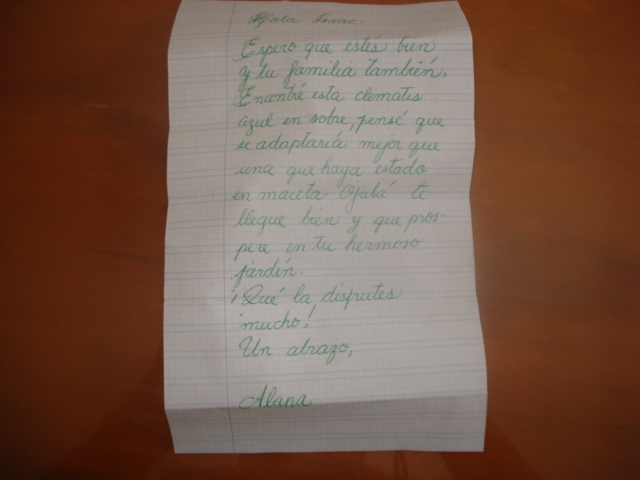 Hola Isaac:
Espero que estés bien
y tu familia también.
Encontré esta clematis
azul en sobre, pensé que
se adaptaría mejor que
una que haya estado
en maceta. Ojalá te
llegue bien y que pros-
pere en tu hermoso
jardín.
¡Qué la disfrutes
mucho!
Un abrazo,
Alana